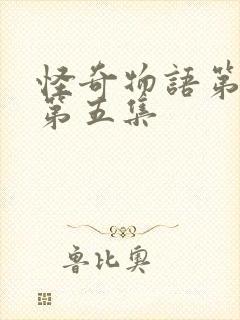 怪奇物語第
第五集
魯比奧